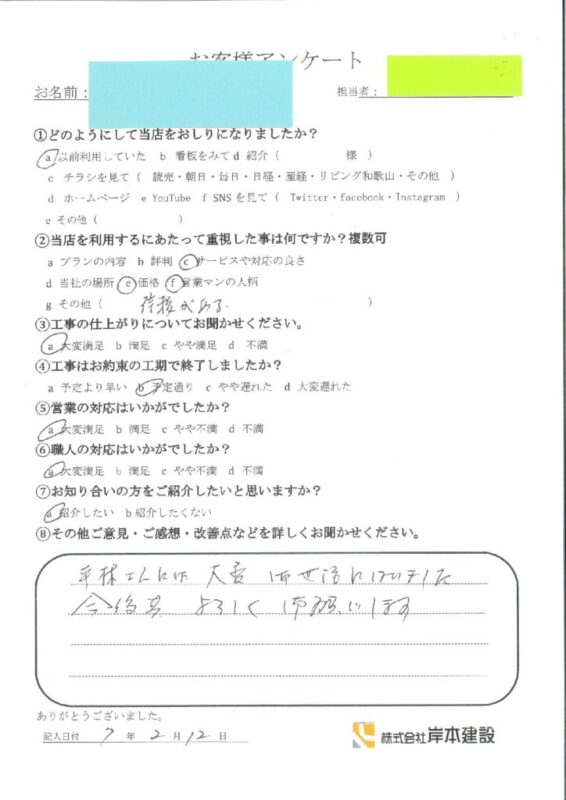 お客様アンケート
お名前：
担当者：
①どのようにして当店をおしりになりましたか？
a 以前利用していた b 看板をみて d 紹介（ 様 ）
c チラシを見て（ 読売・朝日・毎日・日経・産経・リビング和歌山・その他 ）
d ホームページ e YouTube f SNSを見て（ Twitter・facebook・Instagram ）
e その他（ ）
②当店を利用するにあたって重視した事は何ですか？複数可
a プランの内容 b 評判 c サービスや対応の良さ
d 当社の場所 e 価格 f 営業マンの人柄
g その他（ がある ）
③工事の仕上がりについてお聞かせください。
a 大変満足 b 満足 c やや満足 d 不満
④工事はお約束の工期で終了しましたか？
a 予定より早い b 予定通り c やや遅れた d 大変遅れた
⑤営業の対応はいかがでしたか？
a 大変満足 b 満足 c やや不満 d 不満
⑥職人の対応はいかがでしたか？
a 大変満足 b 満足 c やや不満 d 不満
⑦お知り合いの方をご紹介したいと思いますか？
a 紹介したい b 紹介したくない
⑧その他ご意見・ご感想・改善点などを詳しくお聞かせください。
平林さんには 大変 お世話になりました
今後共 よろしく お願いします
ありがとうございました。
記入日付 7 年 2 月 12 日
株式会社 岸本建設